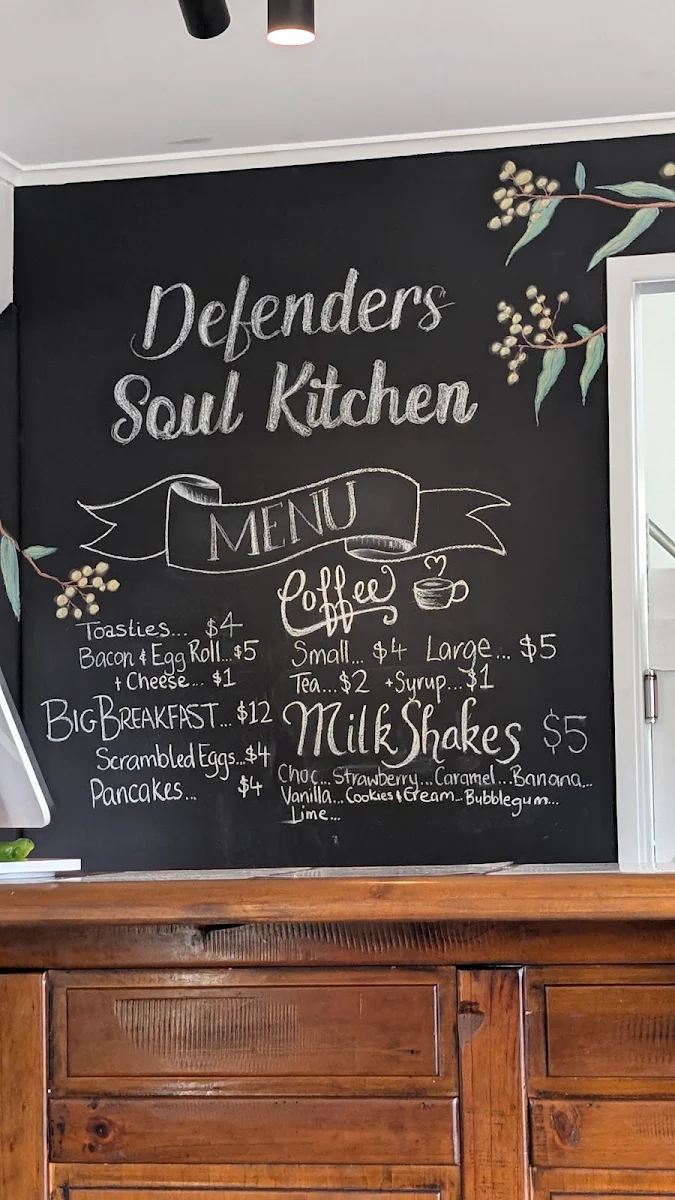 Defenders
Soul Kitchen
MENU
Toasties... $4
Bacon & Egg Roll...$5
+ Cheese... $1
BIG BREAKFAST... $12
Scrambled Eggs...$4
Pancakes... $4
Coffee
Small... $4 Large... $5
Tea...$2 +Syrup...$1
MilkShakes $5
Choc...Strawberry...Caramel...Banana...
Vanilla...Cookies & Cream...Bubblegum...
Lime...